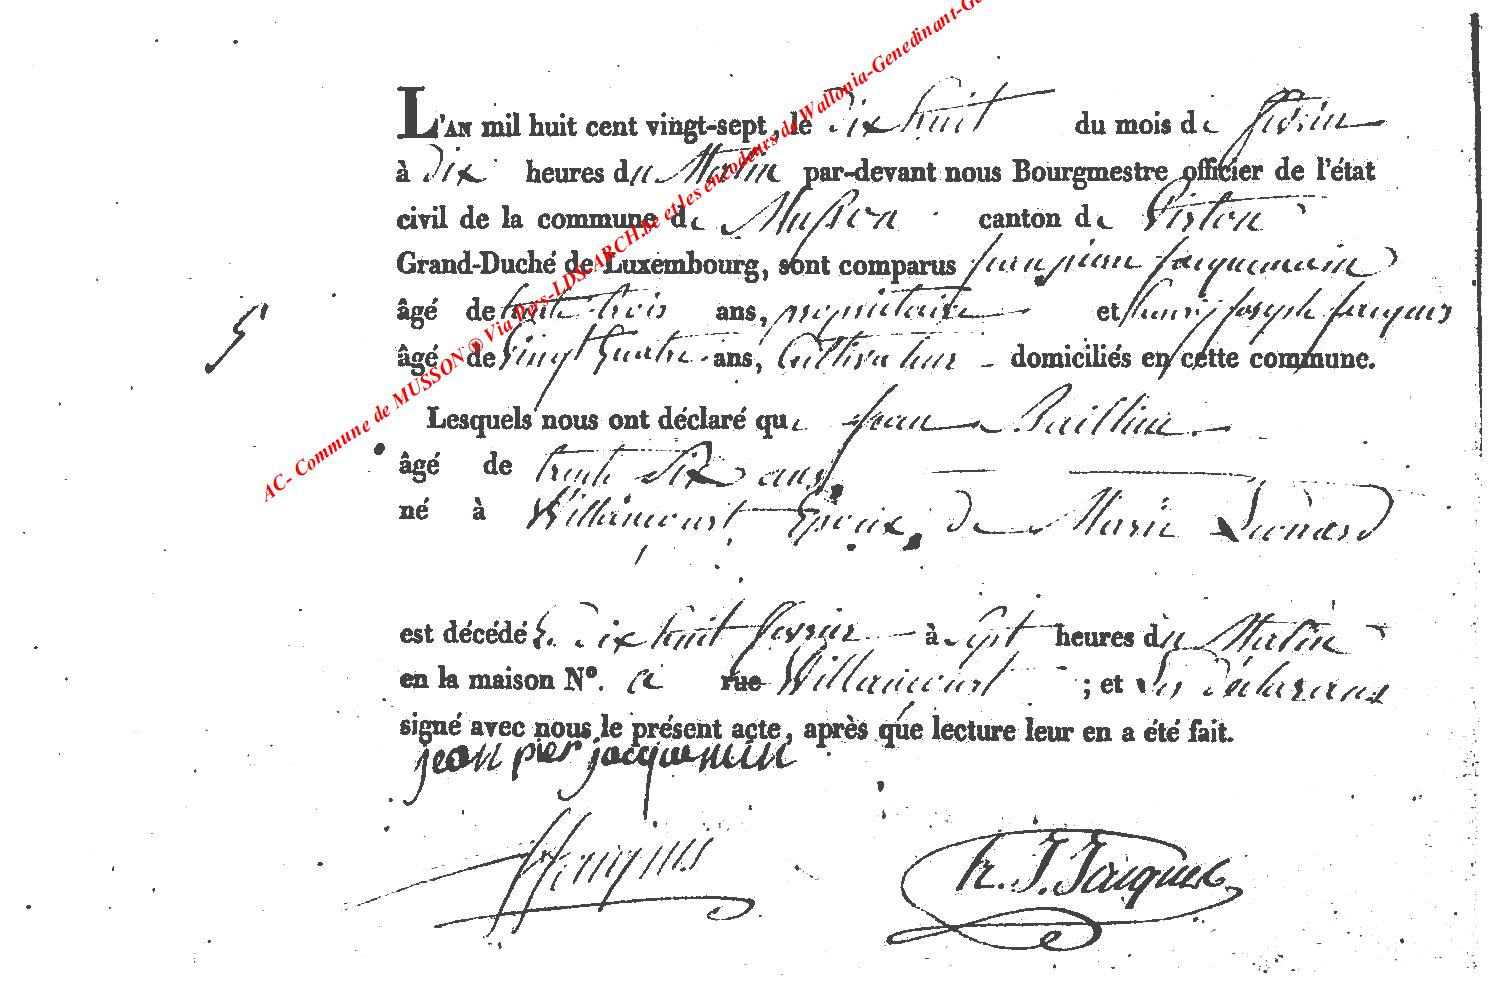 L'AN mil huit cent vingt-sept, le Dix huit du mois de fevrier
à Dix heures du Matin par-devant nous Bourgmestre officier de l'état
civil de la commune de Musson canton de Virton
Grand-Duché de Luxembourg, sont comparus jean pierre jacquemin
âgé de trente trois ans, propriétaire et henry joseph jacques
âgé de Vingt quatre ans, Cultivateur domiciliés en cette commune.
5
Lesquels nous ont déclaré que jean Baillieu
âgé de trente Six ans
né à Willancourt Epoux de Marie Liénard
est décédé le Dix huit fevrier à Sept heures du Matin
en la maison N°. a rue Willancourt ; et les déclarans
signé avec nous le présent acte, après que lecture leur en a été fait.
jean pier jacquemin
Jacques
h. J. Jacques
AC- Commune de MUSSON @ Via Pers-LDS-ARCH.be et les encodeurs de Wallonia-Genedinant-Ge